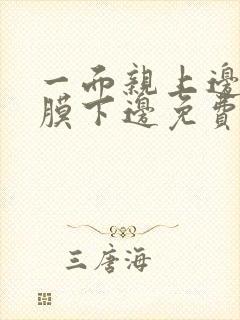 一面親上邊
膜下邊免費
三唐海